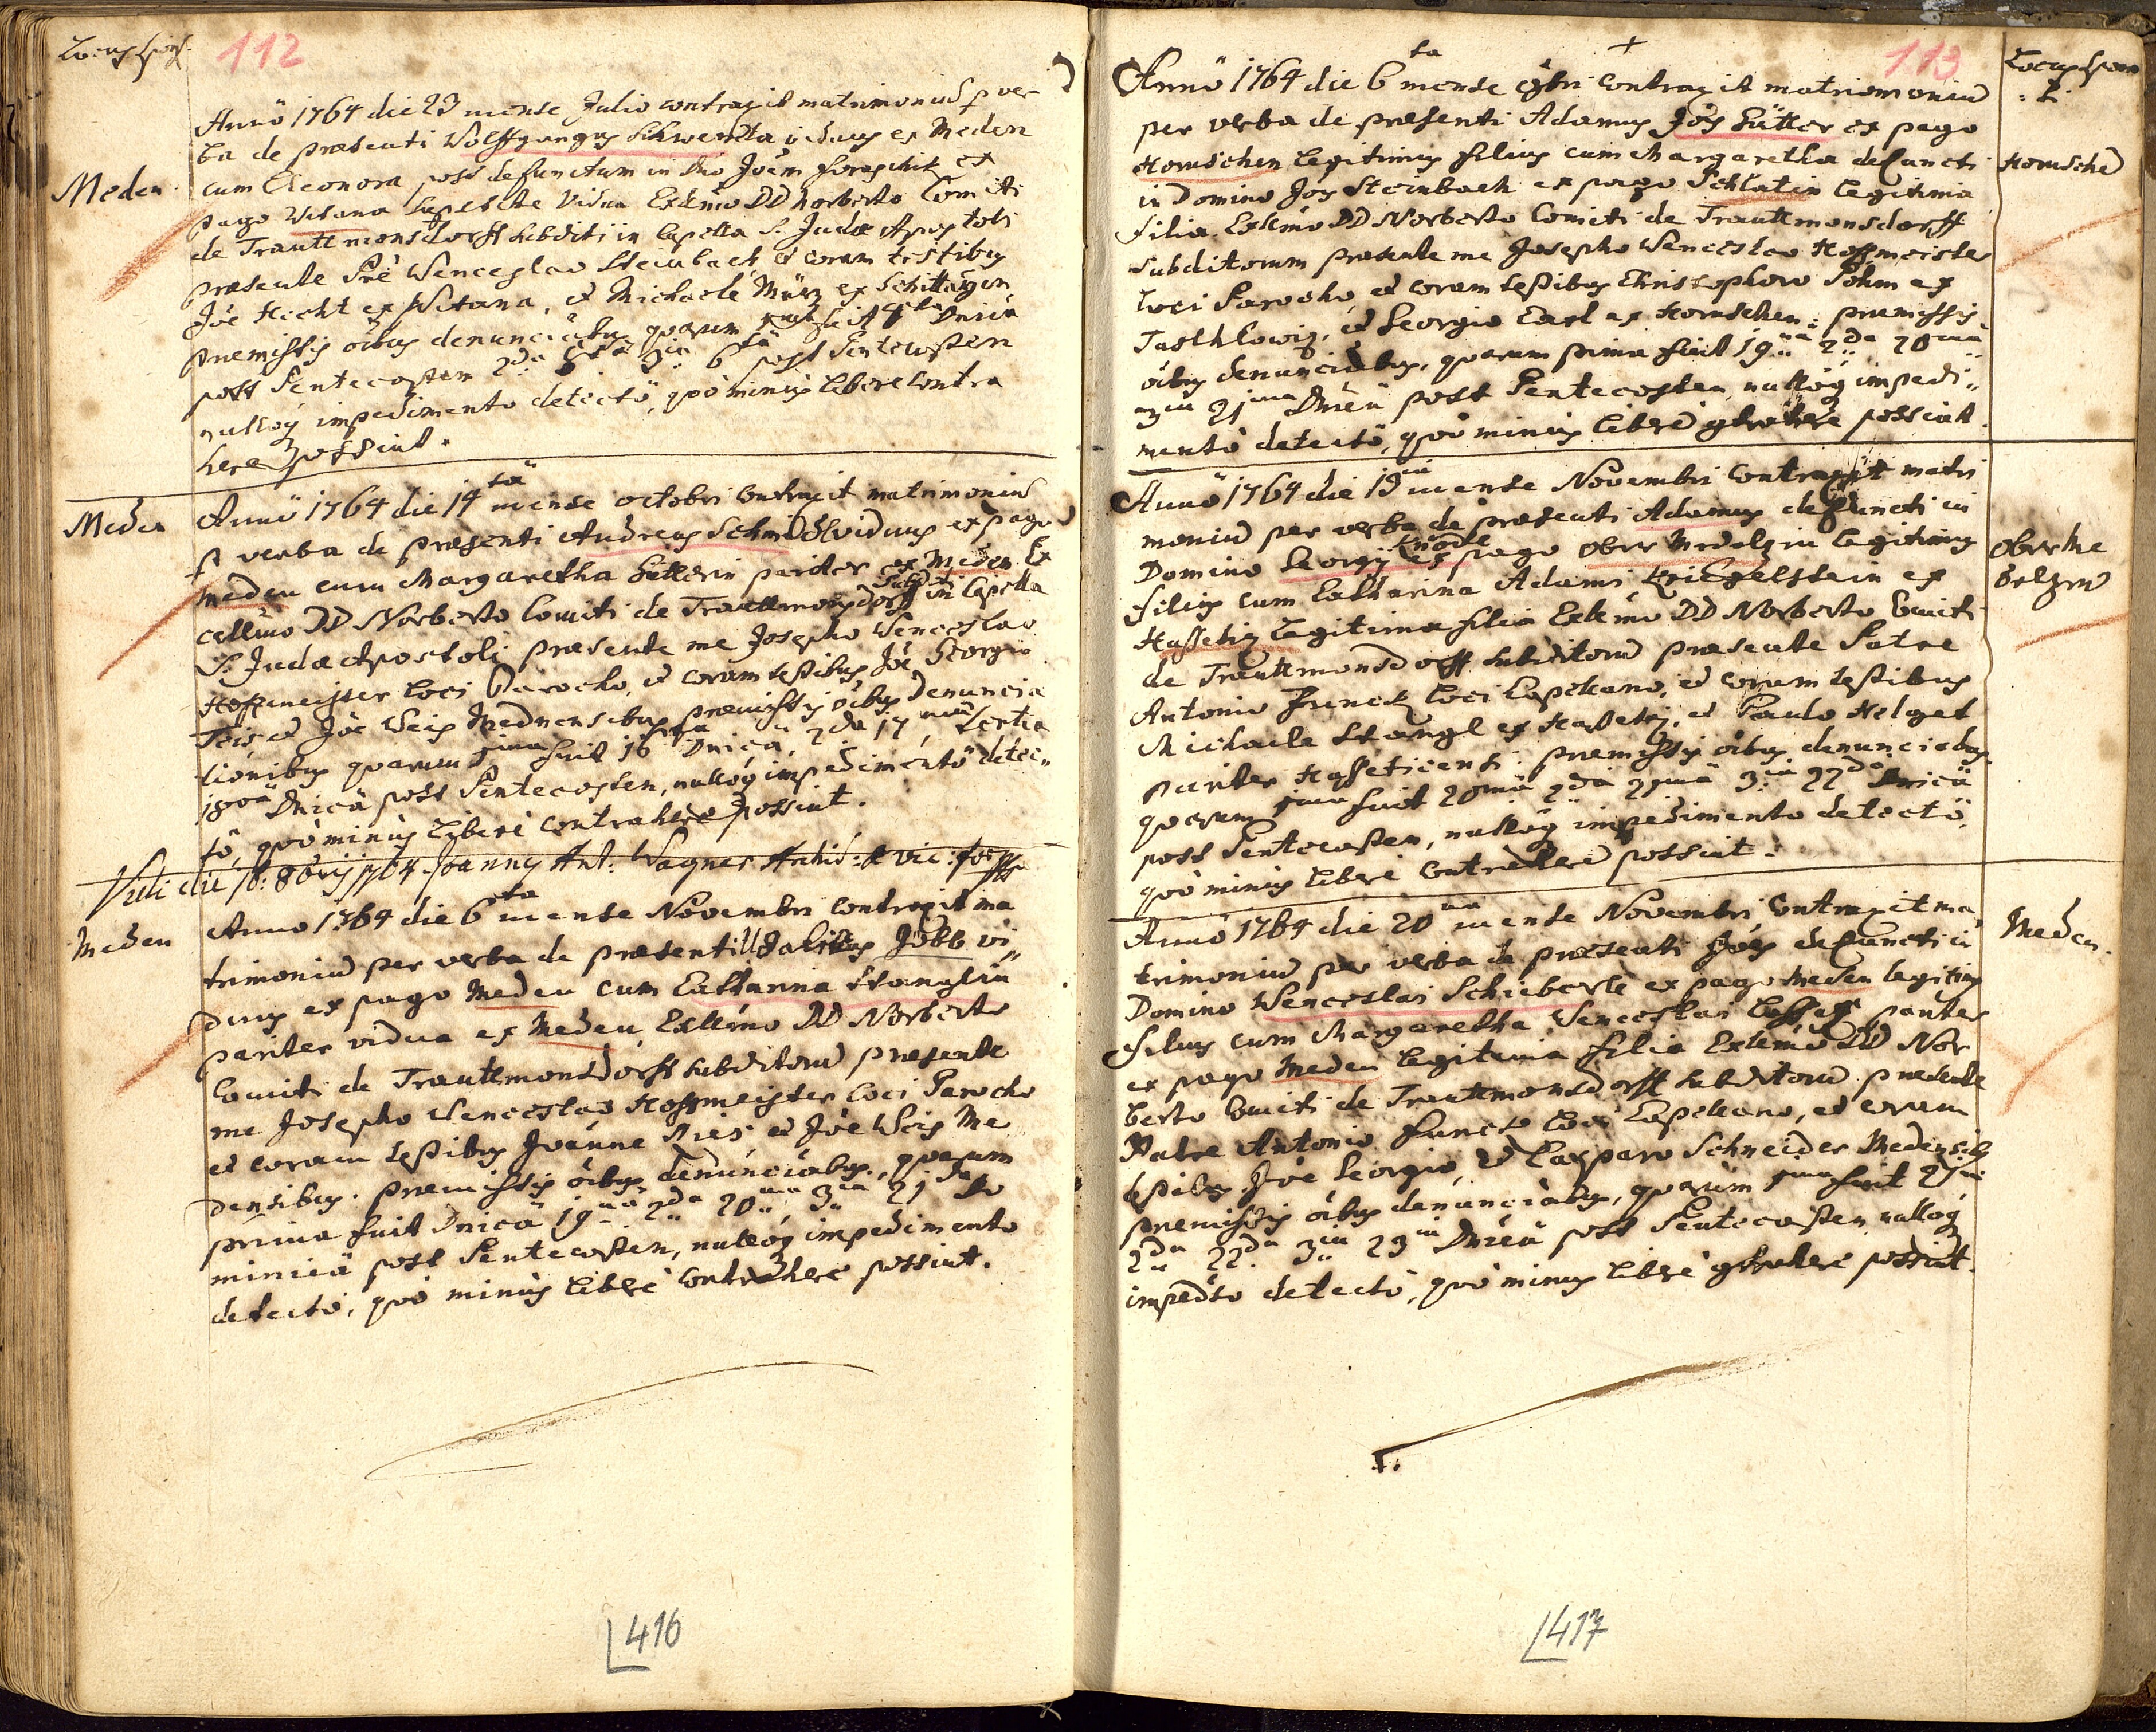 112
Locus spons.
Meden.
Annô 1764 die 23 mense Julio contraxit matrimoniū p ver
ba de præsenti Wolffgangus Schwertza viduus ex Meden
cum Eleonora post defunctum in Dño Joem ex
pago Witana Vidua Exlḿo DD Norberto Comiti
de Trauttmonsdorff subditi in Capella S. Judæ Apostoli
præsente Pr̄e Wenceslao Steinbach et coram testibus
Jōe Hecht ex Witana, et Michaele März ex Schittarzen
præmissis ōibus denunciāōbus quarum fuit 4ta Dnicâ
post Pentecosten 2da 3ia 6ta post Pentecosten
nullóq impedimento detectô, quò minùs libere contra
here possint.
Meden
Annô 1764 die 14tâ mense octobri contraxit matrimoniū
p verba de præsenti Andreas Schmidl viduus ex pago
Meden cum Margaretha Sutterin pariter ex Meden Ex
cellḿo DD Norberto Comiti de Trauttmonsdorff subditi in Capella
S. Judæ Apostoli præsente me Josepho Wenceslao
Hoffmeister loci Parocho, et coram testibus Jōe Georgio
Teis, et Jōe Weis Mednensibus præmissis ōibus denuncia
tiōnibus quarum 1ma fuit 16ta Dnica, 2da 17mâ, tertia
18vâ Dnicâ post Pentecosten, nullóq impedimentô detec„
tô, quò minùs liberè contrahere possint.
Vidi die 16: 8bris 1764 Joannes Ant: Wagner Archid: & vic: for mppa
Meden
Anno 1764 die 6ta mense Novembri contraxit ma
trimoniū per verba de præsenti Udalricus Jobb vi„
duus ex pago Meden cum Catharina Stanglin
pariter vidua ex Meden, Exlḿo DD Norberto
Comiti de Trauttmonsdorff subditorū præsente
me Josepho Wenceslao Hoffmeister loci Parocho
et coram testibus Joánne Ries et Jōe Weis Me
densibus. præmissis ōibus denunciāōbus, quarum
prima fuit Dnicâ 19nâ 2da 20mâ 3ia 21 Do
minicâ post Pentecosten, nullóq impedimento
detectô, quò minùs liberè contrahere possint.
416
113
Locus spon
s.
Hornschen
Annô 1764 die 6ta mense 9bri contraxit matrimoniū
per verba de præsenti Adamus Jōis Sutter ex pago
Hornschen legitimus filius cum Margaretha defuncti
in Domino Jōis Steinbach ex pago Schlatin legitima
filia. Exlḿo DD Norberto Comiti de Trauttmonsdorff
subditorum præsente me Josepho Wenceslao Hoffmeister
loci Parocho, et coram testibus Christophoro Böhm ex
Taschlowiz, et Georgio Earl ex Hornschen: præmissis
ōibus denunciāōbus, quarum prima fuit 19nâ 2da 20mâ
3ia 21ma Dnicâ post Pentecosten, nullóq impedi„
mentô detectô, quò minùs liberè gtrahere possint.
Ober Me
delzen
Annô 1764 die 19 mense Novembri contraxit matri
moniū per verba de præsenti Adamus defuncti in
Domino Georgij Knodl ex pago ober Medelzen legitimus
filius cum Catharina Adami Kriegelstein ex
Hassetiz legitima filia Exlḿo DD Norberto Comiti
de Trauttmonsdorff subditorū præsente Patre
Antonio Funck loci Capellano, et coram testibus
Michaele Stangl ex Hassetiz, et Paulo Helget
pariter Hasseticensi præmissis ōibus denunciāōbus
quarum 1ma fuit 20mâ 2da 21mâ 3ia 22da Dnicâ
post Pentecosten, nullóq impedimento detectô,
quò minùs liberè contrahere possint.
Meden.
Annô 1764 die 20nâ mense Novembri contraxit ma
trimoniū per verba de præsenti Jōes defuncti in
Domino Wenceslai Schieberle ex pago Meden legitimus
filius cum Margaretha Wenceslai pariter
ex pago Meden legitima filia Exlḿo DD Nor
berto Comiti de Trauttmonsdorff subditorū præsente
Patre Antonio Funck loci Capellano, et coram
testibus Jōe Georgio, et Casparo Schneider Medensib:
præmissis ōibus denunciāōbus, quarum 1ma fuit 21ma
2da 22da 3ia 23ia Dnicâ post Pentecosten nullóq
impedto detectô, quò minus liberè gtrahere possint.
417